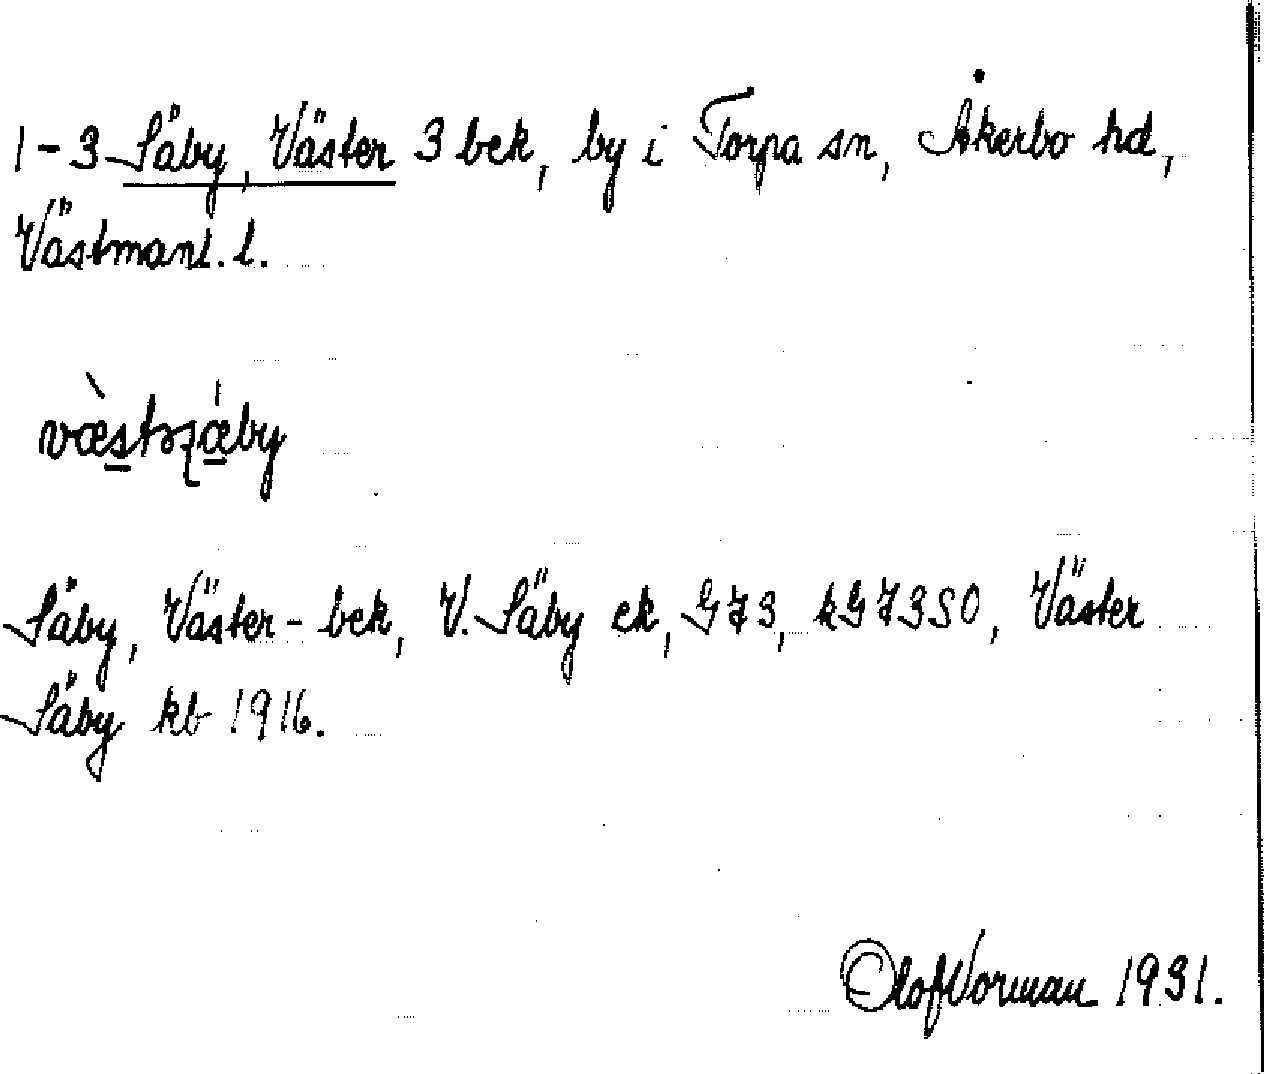 1-3 Säby, Väster 3 bek, by i Torpa sn, Åkerbo hd,
Västmanl. l.
Säby, Väster- bek, V. Säby ek, GJ3, kGJ3SO, Väster
Säby kb 1916.
Olof Vorman 1931.